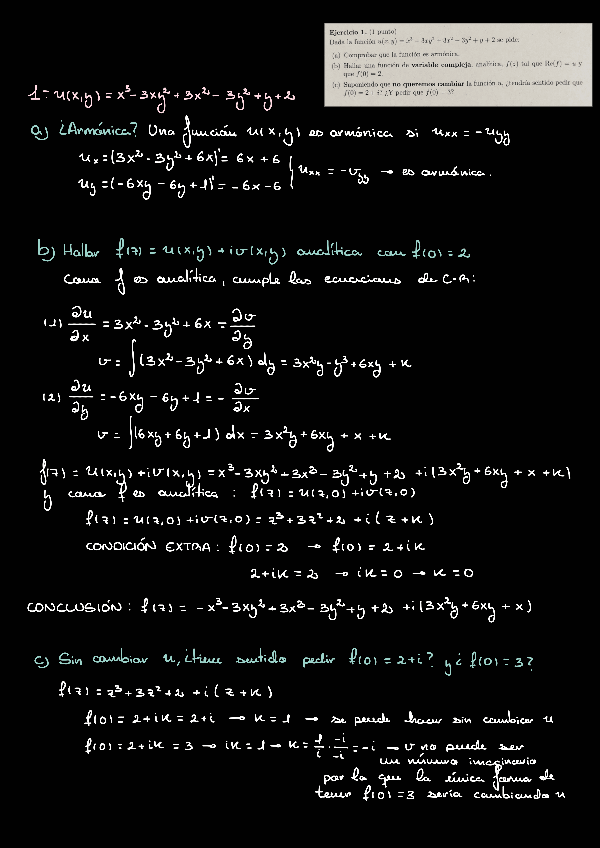 Ejercicio 1. (1 punto)
Dada la función u(x,y) = x³ − 3xy² + 3x² − 3y² + y + 2 se pide:
(a) Comprobar que la función es armónica.
(b) Hallar una función de variable compleja, analítica, f(z) tal que Re(f) = u y
que f(0) = 2.
(c) Suponiendo que no queremos cambiar la función u, ¿tendría sentido pedir que
f(0) = 2 + i? ¿Y pedir que f(0) = 3?
1- u(x,y) = x³-3xy²+3x²-3y²+y+2
a) ¿Armónica? Una función u(x,y) es armónica si uxx = -uyy
ux = (3x²-3y²+6x)' = 6x+6
uy = (-6xy-6y+1)' = -6x-6 } uxx = -uyy → es armónica.
b) Hallar f(z) = u(x,y) + iv(x,y) analítica con f(0) = 2
Como f es analítica, cumple las ecuaciones de C-R:
(1) ∂u/∂x = 3x²-3y²+6x = ∂v/∂y
v = ∫(3x²-3y²+6x) dy = 3x²y-y³+6xy+K
(2) ∂u/∂y = -6xy-6y+1 = -∂v/∂x
v = ∫(6xy+6y+1) dx = 3x²y+6xy+x+K
f(z) = u(x,y)+iv(x,y) = x³-3xy²+3x³-3y²+y+2 +i(3x²y+6xy+x+K)
y como f es analítica : f(z) = u(z,0)+iv(z,0)
f(z) = u(z,0)+iv(z,0) = z³+3z²+2 +i(z+K)
CONDICIÓN EXTRA: f(0)=2 → f(0)=2+iK
2+iK=2 → iK=0 → K=0
CONCLUSIÓN: f(z) = -x³-3xy²+3x³-3y²+y+2 +i(3x²y+6xy+x)
c) Sin cambiar u, ¿tiene sentido pedir f(0)=2+i? y ¿f(0)=3?
f(z) = z³+3z²+2 +i(z+K)
f(0)=2+iK=2+i → K=1 → se puede hacer sin cambiar u
f(0)=2+iK=3 → iK=1 → K=1/i · -i/-i = -i → v no puede ser
un número imaginario
por lo que la única forma de
tener f(0)=3 sería cambiando u